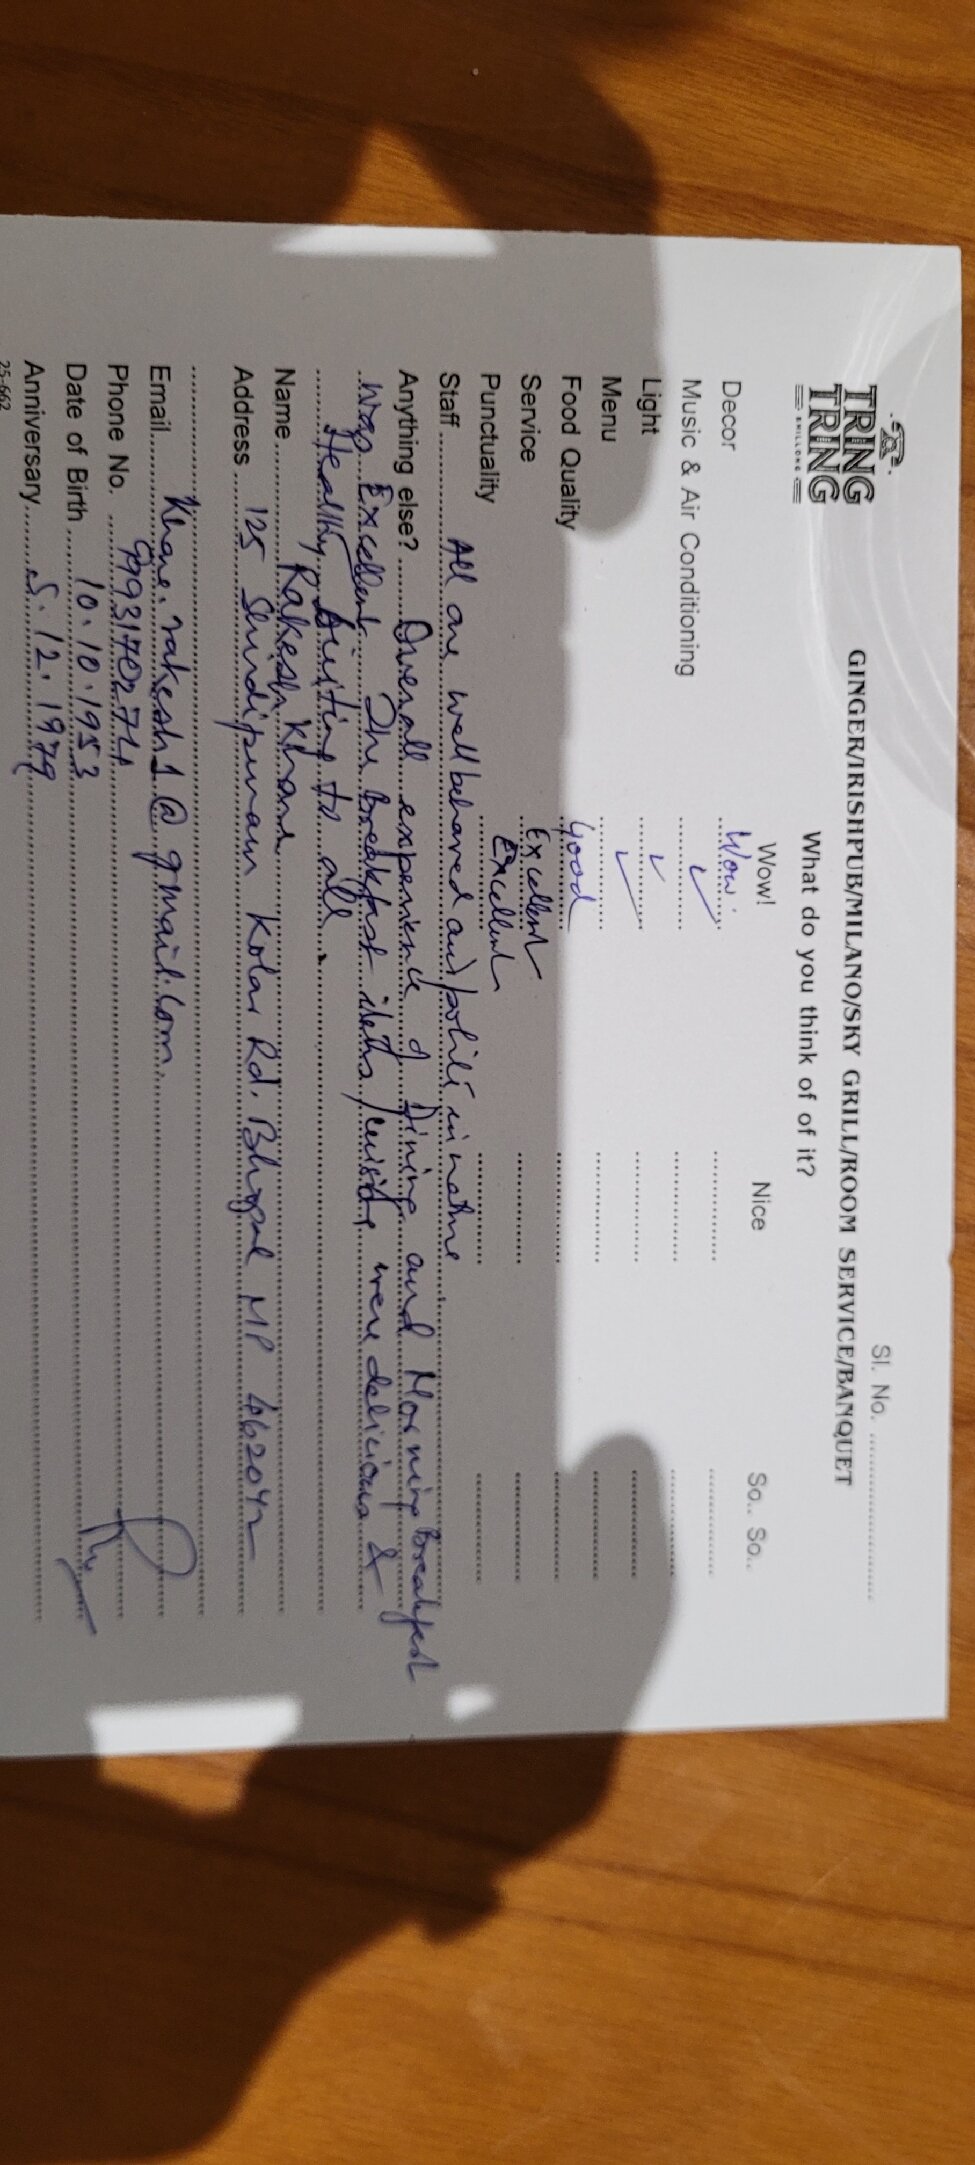 Sl. No. ....................
TRING
TRING
SHILLONG
GINGER/IRISHPUB/MILANO/SKY GRILL/ROOM SERVICE/BANQUET
What do you think of of it?
Wow! Nice So.. So..
Decor Wow
Music & Air Conditioning ✓
Light ✓
Menu ✓
Food Quality Good
Service Excellent
Punctuality Excellent
Staff All are well behaved and polite in nature
Anything else? Overall experience of Dining and Morning breakfast
was Excellent. The breakfast were delicious &
Healthy to all.
Name Rakesh Khare
Address 125 Kolar Rd. Bhopal MP 462042
Email Khare.rakesh1@gmail.com
Phone No.
Date of Birth 10.10.1953
Anniversary 5.12.1979
25-662